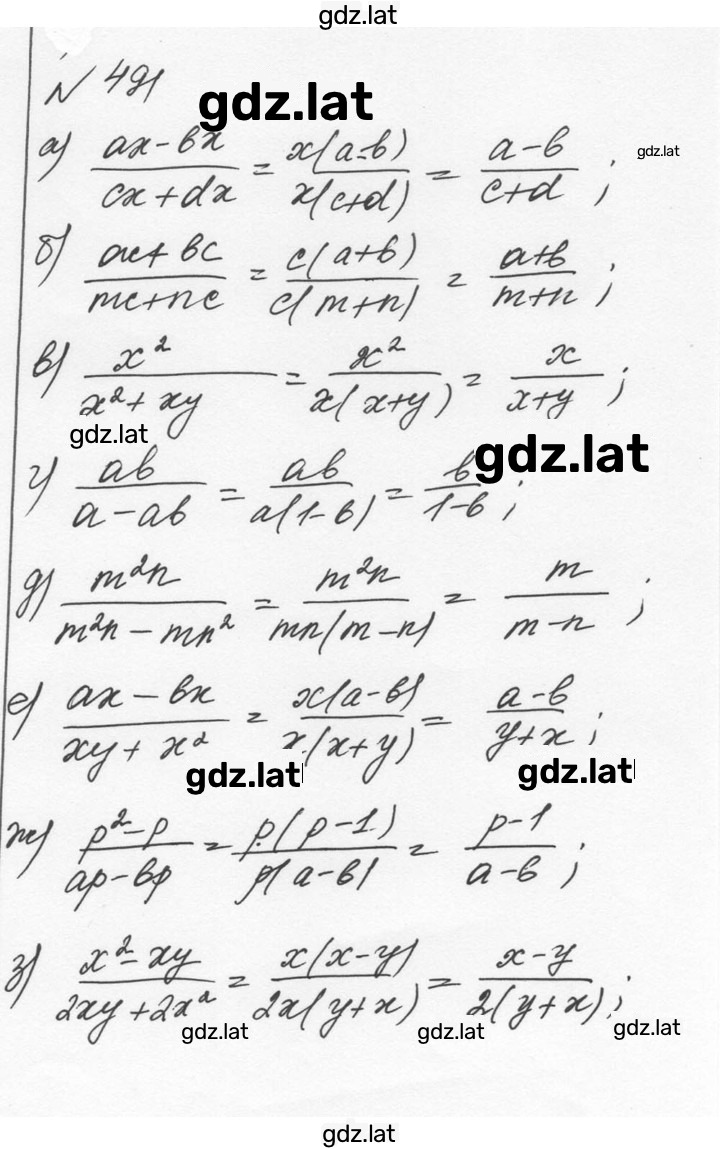 gdz.lat
№ 491
gdz.lat
а) (ax-bx)/(cx+dx) = x(a-b)/x(c+d) = (a-b)/(c+d);
gdz.lat
б) (ac+bc)/(mc+nc) = c(a+b)/c(m+n) = (a+b)/(m+n);
в) x²/(x²+xy) = x²/x(x+y) = x/(x+y);
gdz.lat
gdz.lat
г) ab/(a-ab) = ab/a(1-b) = b/(1-b);
д) m²n/(m²n-mn²) = m²n/mn(m-n) = m/(m-n);
е) (ax-bx)/(xy+x²) = x(a-b)/x(x+y) = (a-b)/(y+x);
gdz.lat
gdz.lat
ж) (p²-p)/(ap-bp) = p(p-1)/p(a-b) = (p-1)/(a-b);
з) (x²-xy)/(2xy+2x²) = x(x-y)/2x(y+x) = (x-y)/2(y+x);
gdz.lat
gdz.lat
gdz.lat
gdz.lat